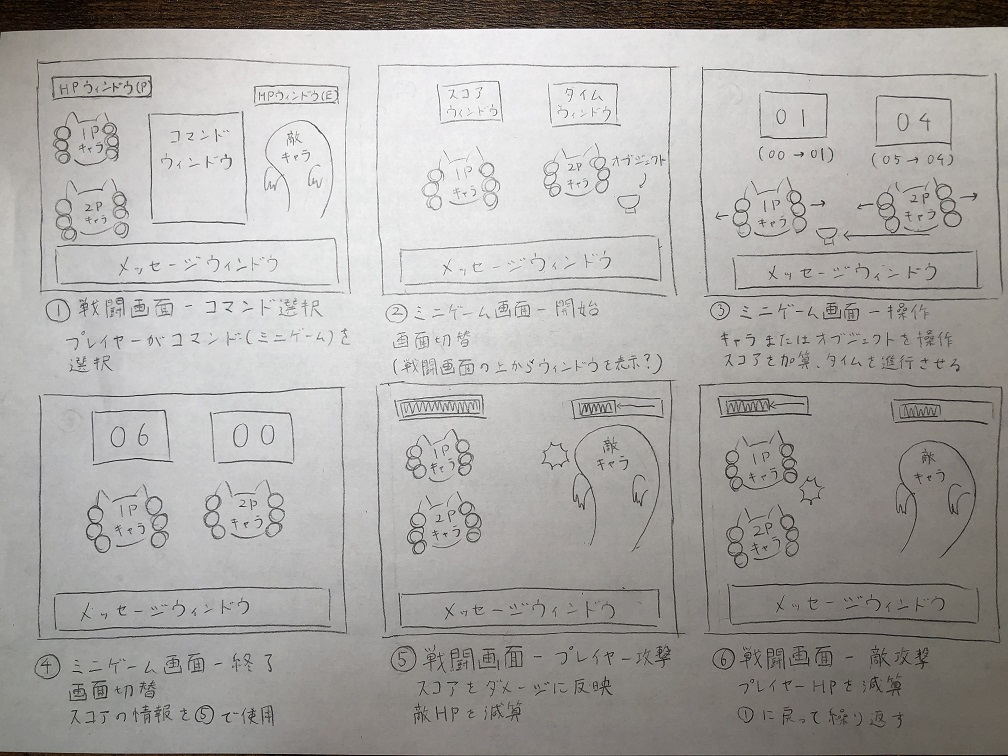 HPウィンドウ(P)
HPウィンドウ(E)
1P
キャラ
コマンド
ウィンドウ
敵
キャラ
2P
キャラ
メッセージウィンドウ
① 戦闘画面 - コマンド選択
プレイヤーがコマンド(ミニゲーム)を
選択
スコア
ウィンドウ
タイム
ウィンドウ
1P
キャラ
2P
キャラ
オブジェクト
メッセージウィンドウ
② ミニゲーム画面 - 開始
画面切替
(戦闘画面の上からウィンドウを表示?)
01
04
(00→01)
(05→04)
1P
キャラ
2P
キャラ
メッセージウィンドウ
③ ミニゲーム画面 - 操作
キャラまたはオブジェクトを操作
スコアを加算、タイムを進行させる
06
00
1P
キャラ
2P
キャラ
メッセージウィンドウ
④ ミニゲーム画面 - 終了
画面切替
スコアの情報を⑤で使用
1P
キャラ
敵
キャラ
2P
キャラ
メッセージウィンドウ
⑤ 戦闘画面 - プレイヤー攻撃
スコアをダメージに反映
敵HPを減算
1P
キャラ
敵
キャラ
2P
キャラ
メッセージウィンドウ
⑥ 戦闘画面 - 敵攻撃
プレイヤーHPを減算
①に戻って繰り返す